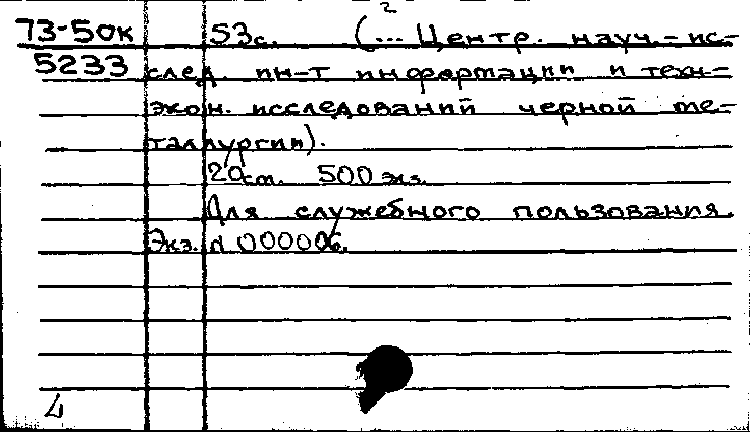 2
73-50к 53с. (... Центр. науч.-ис-
5233 след. ин-т информации и техн-
экон. исследований черной ме-
таллургии).
20см. 500 экз.
Для служебного пользования.
Экз. № 000006.
4